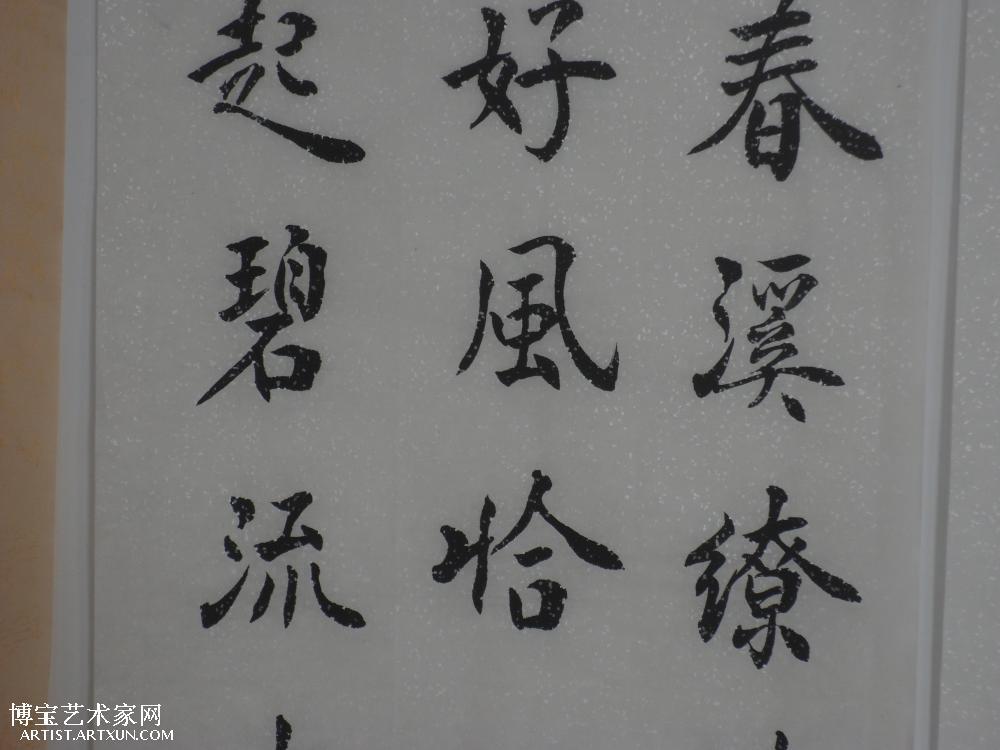 春溪繚
好風恰
起碧流
博宝艺术家网
ARTIST.ARTXUN.COM